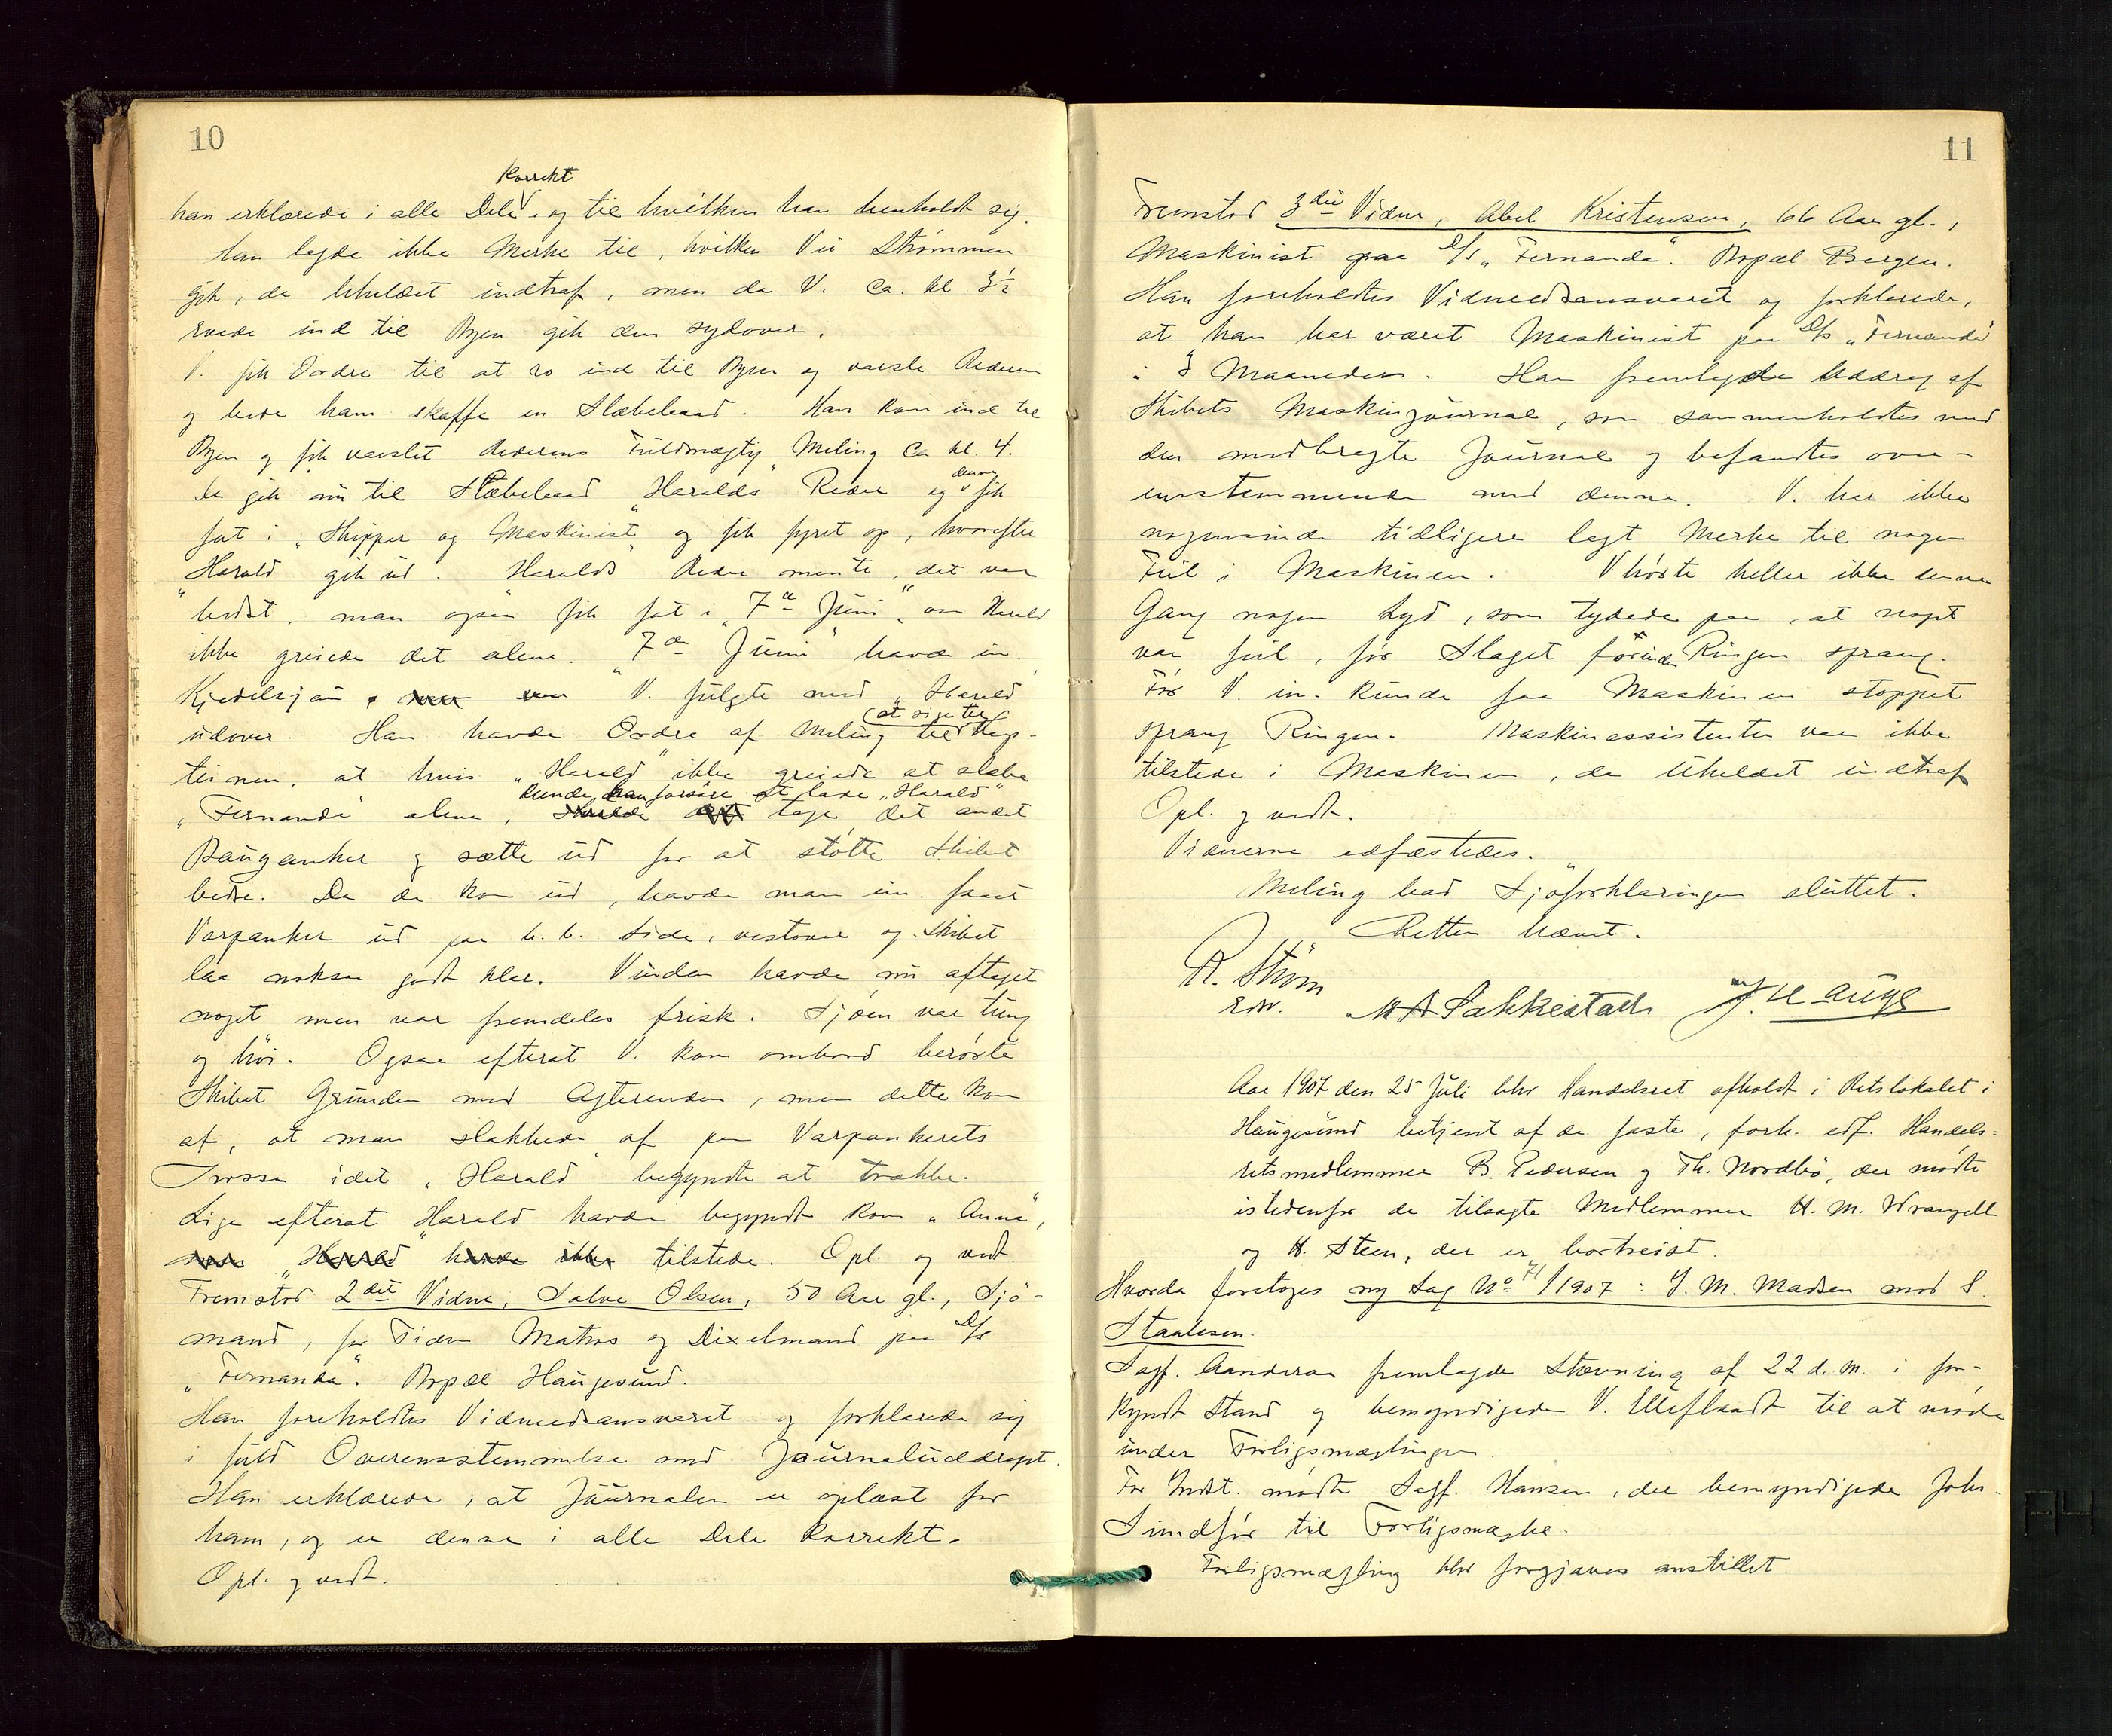 10
Korrekt
han erklærede i alle Dele og til hvilken han henholdt sig.
Han lagde ikke Merke til, hvilken Vei Strømmen
gik, da Uheldet indtraf, men da V. ca. kl 3½
roede ind til Byen gik den sydover.
V. fik Ordre til at ro ind til Byen og varsle Rederen
og bede ham skaffe en Slæbebaad. Han kom ind til
Byen og fik varslet Rederens Fuldmægtig Meling ca kl. 4.
denne
De gik nu til Slæbebaad "Haralds" Reder og fik
fat i Skipper og Maskinist og fik fyret op, hvorefter
"Harald" gik ud. Haralds Reder mente, det var
bedst, man også fik fat i "7de Juni", om Harald
ikke greiede det alene. "7de Juni" havde im.
Kjedelsjau. V. fulgte med "Harald"
at sige til
udover. Han havde Ordre af Meling til Kap-
teinen, at hvis "Harald" ikke greiede at slæbe
kunde han forsøge at lade "Harald"
"Fernanda" alene, tage det andet
Bauganker og sætte ud for at støtte Skibet
bedre. De de kom ud, havde man im. faaet
Varpanker ud paa b.b. Side, vestover og Skibet
laa noksaa godt klar. Vinden havde nu aftaget
noget men var fremdeles frisk. Sjøen var tung
og høi. Ogsaa efterat V. kom ombord berørte
Skibet Grunden med Agterenden, men dette kom
af, at man slakkede af paa Varpankerets
Trosse idet "Harald" begyndte at trække.
Lige efterat Harald havde begyndt kom "Anna",
tilstede. Opl. og vedt.
Fremstod 2det Vidne, Salve Olsen, 50 Aar gl., Sjø-
mand, for Tiden Matros og Dixelmand paa D/s
"Fernanda". Bopæl Haugesund.
Han foreholdtes Vidneedsansvaret og forklarede sig
i fuld Overensstemmelse med Journaluddraget.
Han erklærede, at Journalen er oplæst for
ham, og er denne i alle Dele korrekt.
Opl. og vedt.
11
Fremstod 3die Vidne, Abel Kristensen, 66 Aar gl.,
Maskinist paa D/s "Fernanda". Bopæl Bergen.
Han foreholdtes Vidneedsansvaret og forklarede,
at han har været Maskinist paa D/s "Fernanda"
i 8 Maaneder. Han fremlagde Uddrag af
Skibets Maskinjournal, som sammenholdtes med
den medbragte Journal og befandtes over-
ensstemmende med denne. V. har ikke
nogensinde tidligere lagt Merke til nogen
Feil i Maskinen. V hørte heller ikke denne
Gang nogen Lyd, som tydede paa, at noget
var feil, før Slaget forinden Ringen sprang.
Før V. im. kunde faa Maskinen stoppet
sprang Ringen. Maskinassistenten var ikke
tilstede i Maskinen, da Uheldet indtraf
Opl. og vedt.
Vidnerne edfæstedes.
Meling bad Sjøforklaringen sluttet.
Retten hævet.
R. Strøm
edv. M A Sakkestad J. Hauge
Aar 1907 den 25 Juli blev Handelsret afholdt i Retslokalet i
Haugesund betjent af de faste, forh. edf. Handels-
retsmedlemmer B. Pedersen og Th. Nordbø, der mødte
istedenfor de tilsagte Medlemmer H. M. Wrangell
og H. Steen, der er bortreist.
Hvorda foretoges ny Sag No 71/1907: J. M. Madsen mod S.
Staalesen.
Sagf. Aanderaa fremlagde Stævning af 22 d.m. i for-
kyndt Stand og bemyndigede V. Elleflaadt til at møde
under Forligsmæglingen.
For Indst. mødte Sagf. Hansen, der bemyndigede Johs.
Simdfør til Forligsmægle.
Forligsmægling blev forgjæves anstillet.